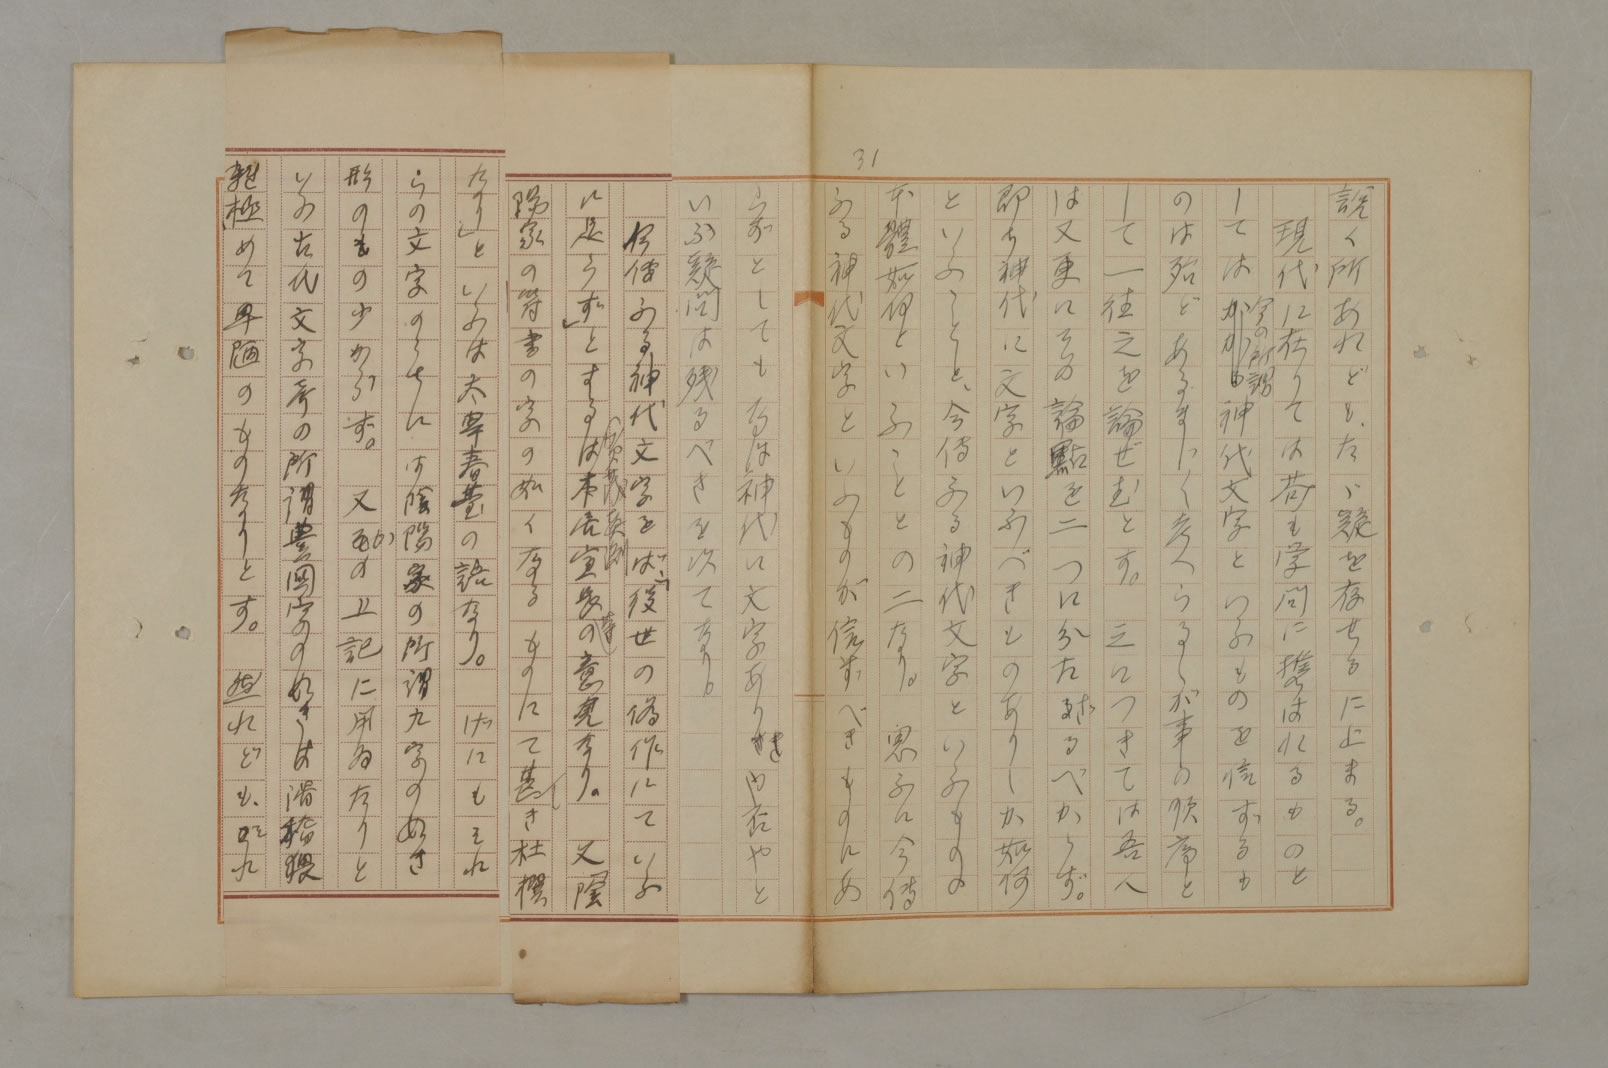 31
説く所あれども、たゞ疑を存せるに止まる。
現代に在りては苟も学問に携はれるものと
しては今の所謂神代文字といふものを信ずるも
のは殆どあるまじく考へらるゝが事の順序と
して一往之を論ぜむとす。之につきては吾人
は又更にその論點を二つに分た ざるべからず。
即ち神代に文字といふべきものありしか如何
といふことゝ、今傳ふる神代文字といふものゝ
本體如何といふことの二なり。思ふに今傳
ふる神代文字といふものが信ずべきものにあ
らずとしても なほ神代に文字ありきや否やと
いふ疑問は残るべきを以てなり。
今傳ふる神代文字をば「後世の偽作にていふ
に足らず」とするは賀茂真淵本居宣長等の意見なり。又陰
陽家の符書の字の如くなるものにて甚しき杜撰
なり」といふは太宰春臺の語なり。げにもそれ
らの文字のうちには陰陽家の所謂九字の如き
形のもの少からず。又かの上記に用ゐたりと
いふ古代文字の所謂豊国字の如きは滑稽猥
雑極めて卑陋のものなりとす。然れども、かれ